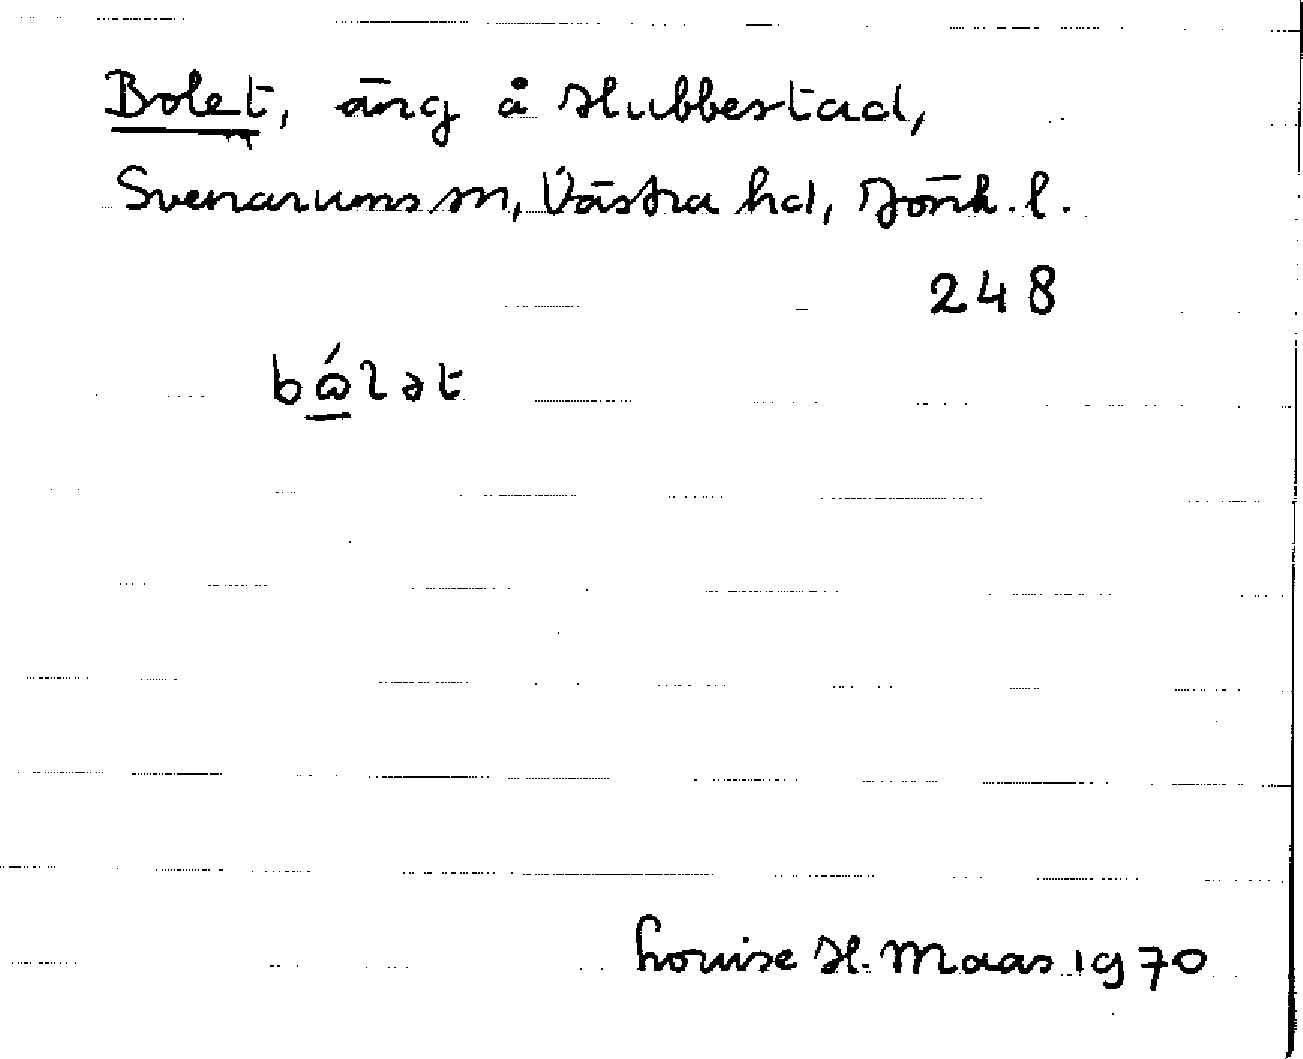 Bolet, äng å Hubbestad,
Svenarums sn, Västra hd, Jönk. l.
248
bώlət
Louise H. Maas 1970